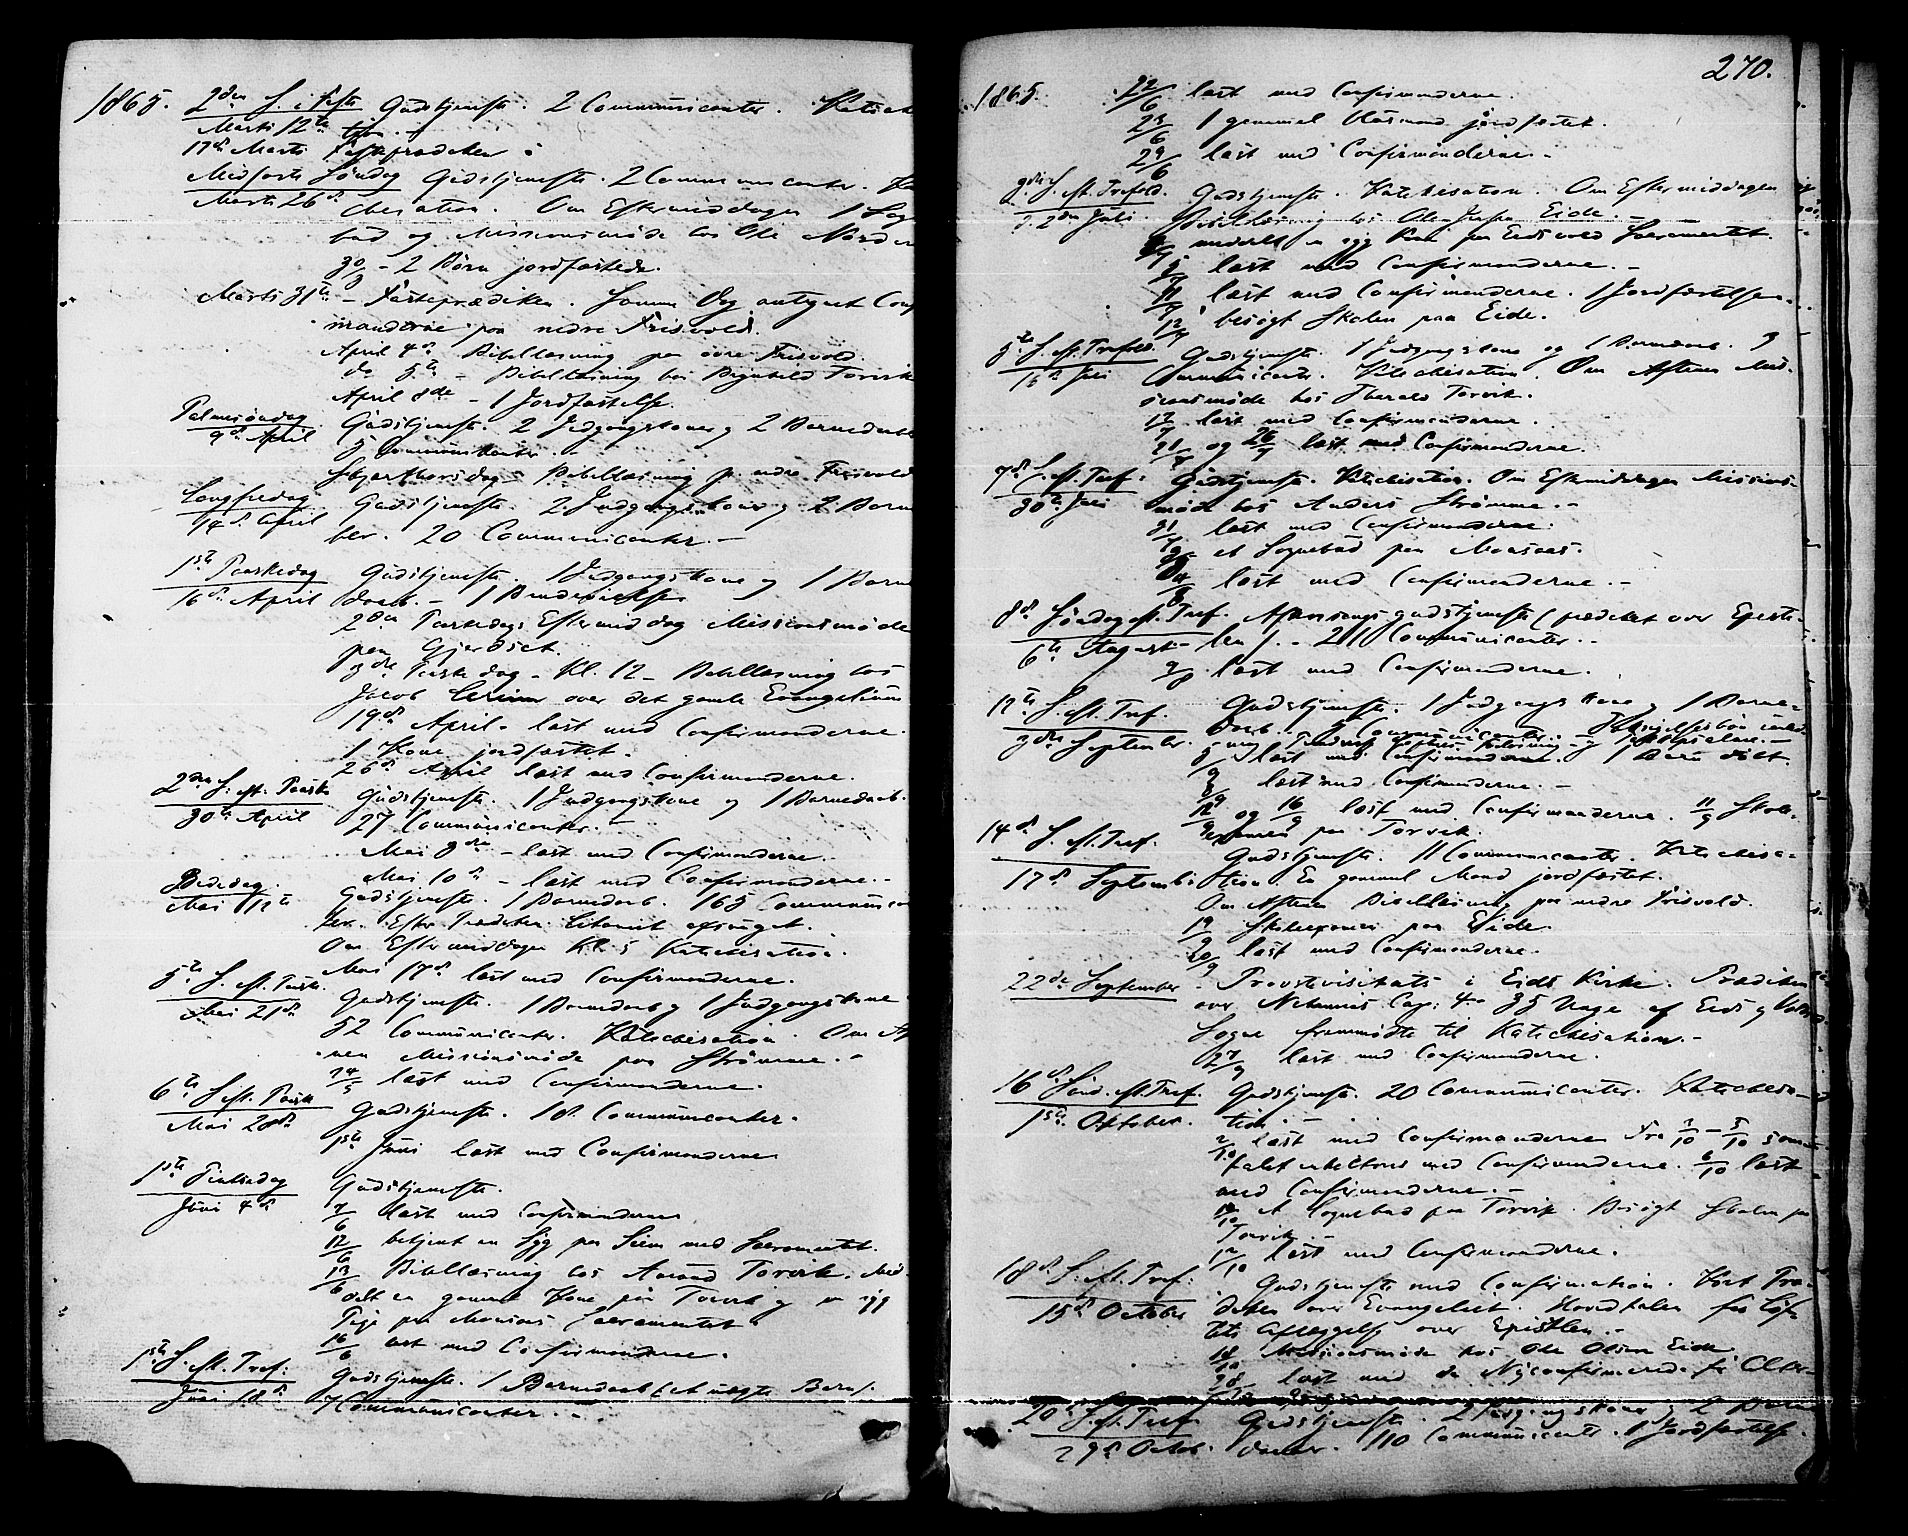 1865. 2den S. i Faste Gudstjeneste. 2 Communicanter. Katiche
Marts 12te tion.
17de Marts Fasteprædiken.
Midfaste Søndag Gudstjeneste. 2 Communicanter. Ka
Marts 26de chesation. Om Eftermiddagen 1 Sogne
bud og Missionsmøde hos Ole Norden
30/3 - 2 Børn jordfæstede.
Marts 31te - Fasteprædiken. Samme Dag antegnet Conf
manderne paa nedre Frisvold.
April 4de Bibellæsning paa øvre Frisvold.
do 5te - Bibellæsning hos Torvik
April 8de - 1 Jordfæstelse.
Palmesøndag Gudstjeneste. 2 Indgangskoner og 2 Barnedaab
9de April 5 Communicanter.
Skjærthorsdag - Bibellæsning paa nedre Frisvold
Langfredag Gudstjeneste. 2 Indgangskoner og 2 Barne
14de April ber. 20 Communicanter. -
1ste Paaskedag Gudstjeneste. 1 Indgangskone og 1 Barne
16de April daab. - 1
2den Paaskedags Eftermiddag Missionsmøde
paa Gjerdset.
3die Paaskedag - Kl. 12 - Bibellæsning hos
Jacob over det gamle Evangelium
19de April - læst med Confirmanderne.
1 Kone jordfæstet.
26de April læst med Confirmanderne.
2den S. eft. Paaske Gudstjeneste. 1 Indgangskone og 1 Barnedaab.
30te April 27 Communicanter.
Mai 3die - læst med Confirmanderne.
Mai 10de - læst med Confirmanderne. -
Bededag. Gudstjeneste. 1 Barnedaab. 165 Communican
Mai 12te ter. Efter Prædiken Litaniet afsunget.
Om Eftermiddagen Kl. 5 Katichesation.
Mai 17de læst med Confirmanderne.
5te S. eft. Paaske Gudstjeneste. 1 Barnedaab og 1 Indgangskone
Mai 21de 52 Communicanter. Katechisation. Om Af
nen Missionsmøde paa Strømme. -
24/5 læst med Confirmanderne.
6te S. eft. Paaske Gudstjeneste. 18 Communicanter.
Mai 28de
1ste Juni læst med Confirmanderne
1ste Pintsedag Gudstjeneste.
Juni 4de 7/6 læst med Confirmanderne
12/6 betjent en Syg paa med Sacramentet.
13/6 Bibellæsning hos Amund Torvik. Med-
delt en gammel Kone paa Torvik og en syg
Pige paa Monsaas Sacramentet
16/6 læst med Confirmanderne.
1ste S. eft. Tref. Gudstjeneste. 1 Barnedaab (et uægte Barn).
Juni 18de 7 Communicanter.
270.
1865. 22/6 læst med Confirmanderne.
23/6 1 gammel jordfæstet.
29/6 læst med Confirmanderne -
3die S. eft. Trefold. Gudstjeneste. Katechisation. Om Eftermiddagen
d. 2den Juli Bibellæsning hos Eide. -
meddelt en syg paa Eidsvold Sacramentet.
5/7 læst med Confirmanderne. -
11/7 læst med Confirmanderne. 1 Jordfæstelse
12/7 besøgt Skolen paa Eide.
5te S. eft. Trefold. Gudstjeneste. 1 Indgangskone og 1 Barnedaab. 3
16de Juli Communicanter. Katechisation. Om Aftenen Mis-
sionsmøde hos Torvik.
17/7 læst med Confirmanderne.
21/7 og 26/7 læst med Confirmanderne.
7de S. eft. Tref. Gudstjeneste. Katichisation. Om Eftermiddagen Missions-
30te Juli møde hos Anders Strømme. -
31/7 læst med Confirmanderne.
et Sognebud paa Monsaas.
læst med Confirmanderne. -
8de Søndag eft. Tref. Aftensangsgudstjeneste (prædiket over Episte-
6te August len). - 211 Communicanter. -
9/8 læst med Confirmanderne.
12te S. eft. Tref. Gudstjeneste. 1 Indgangskone og 1 Barne-
3die September. daab. 5 Communicanter.
5/9 læst med Confirmanderne. 1 Barn døbt.
8/9 læst med Confirmanderne. -
12/9 og 16/9 læst med Confirmanderne. 11/9 Skole-
examen paa Torvik.
14de S. eft. Tref. Gudstjeneste. 11 Communicanter. Katechisa-
17de September tion. En gammel Mand jordfæstet.
Om Aftenen Bibellæsning paa nedre Frisvold.
19/9 Skoleexamen paa Eide.
20/9 læst med Confirmanderne.
22de September - Provstevisitats i Eids Kirke. Prædiken
over Nehemias Cap: 4. - 35 Unge af Eids og
Sogne fremmødte til Katechisation. -
27/9 læst med Confirmanderne.
16de Sønd. eft. Tref. Gudstjeneste. 20 Communicanter. Katechesa-
1ste Oktober. tion. -
2/10 læst med Confirmanderne Fra 3/10 - 5/10
med Confirmanderne. 6/10 læst
med Confirmanderne. -
et Sognebud paa Torvik. Besøgt Skolen paa
Torvik. -
12/10 læst med Confirmanderne.
18de S. eft. Tref. Gudstjeneste med Confirmation. Kort Præ-
15de October diken over Evangeliet. Hovedtalen for Løf-
tets Aflæggelse over Epistlen. -
18/10 Missionsmøde hos Ole Olsen Eide
læst med de Nyconfirmerede
20de S. eft. Tref. Gudstjeneste. 2 Indgangskoner og 2 Barne
29de Octob. daaber. 110 Communicanter. 1 Jordfæstelse.